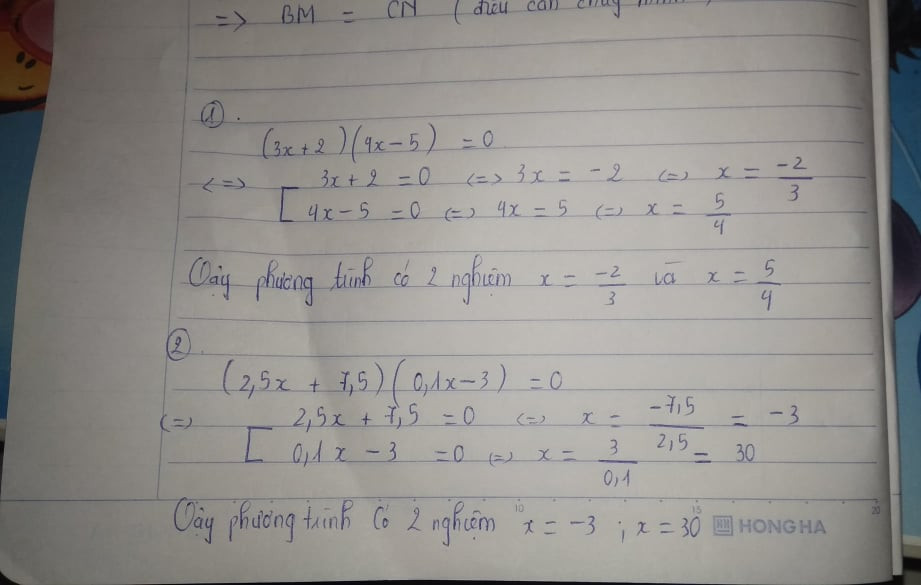 => BM = CN (điều cần chứng minh)
①.
(3x+2)(4x-5) = 0
<=> [ 3x+2 = 0 <=> 3x = -2 <=> x = -2/3
4x-5 = 0 <=> 4x = 5 <=> x = 5/4
Vậy phương trình có 2 nghiệm x = -2/3 và x = 5/4
②.
(2,5x + 7,5)(0,1x-3) = 0
<=> [ 2,5x + 7,5 = 0 <=> x = -7,5/2,5 = -3
0,1x - 3 = 0 <=> x = 3/0,1 = 30
Vậy phương trình có 2 nghiệm x = -3 ; x = 30
10 15 20
HONG HA